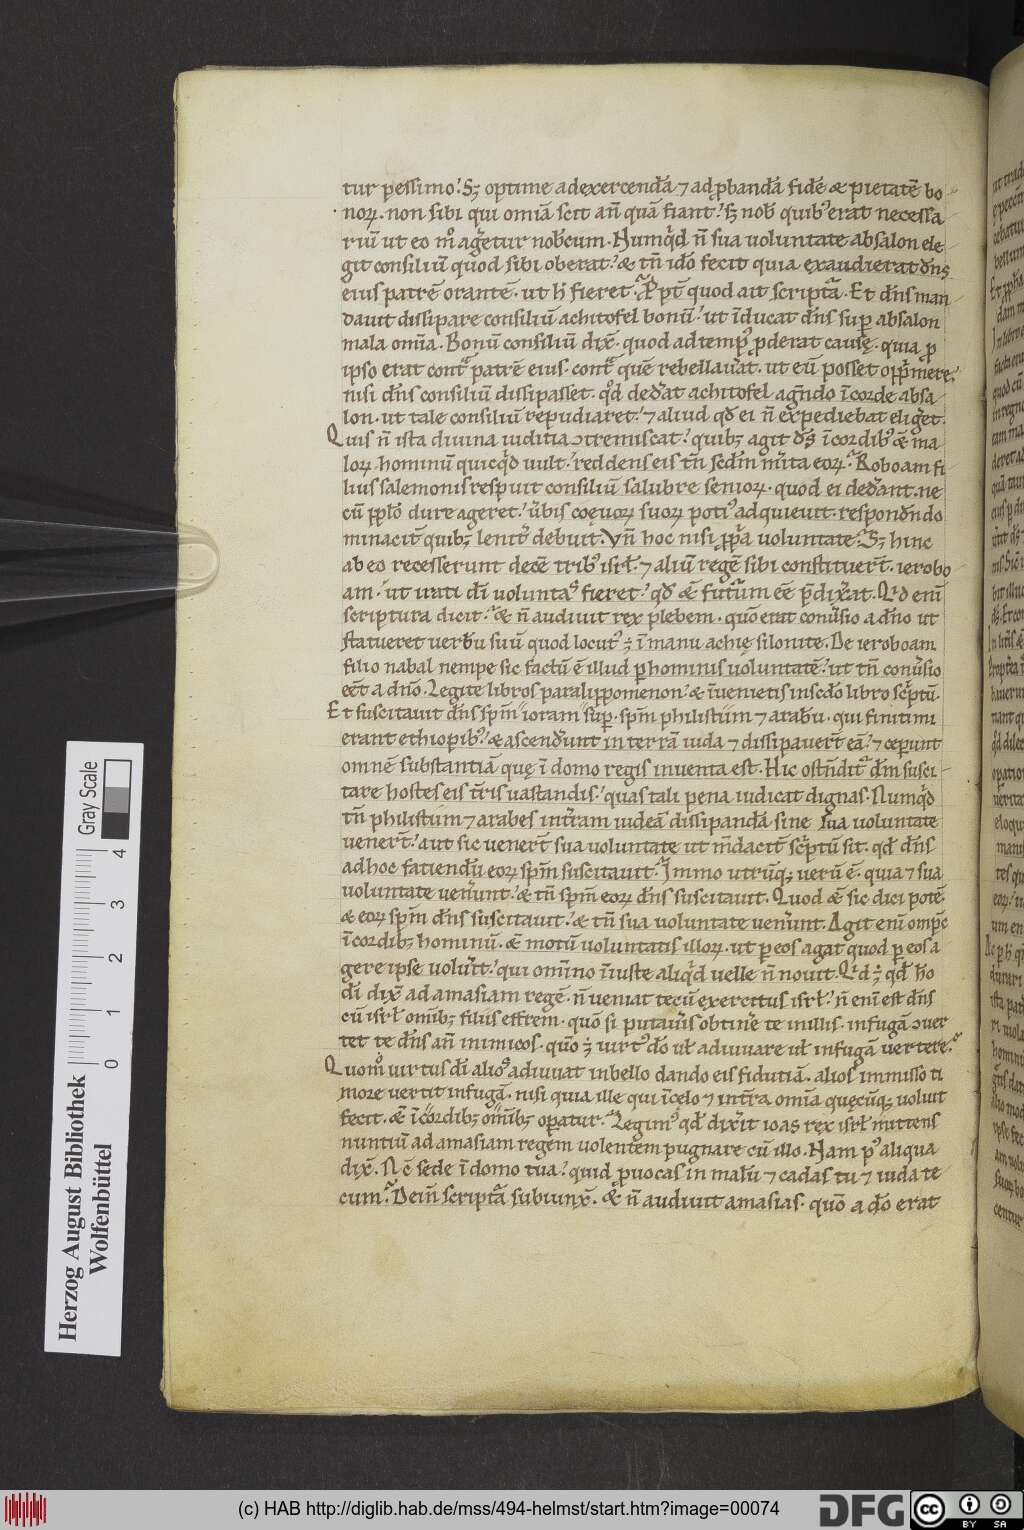 tur pessimo. Sꝫ optime adexercendā ⁊ adꝓbandā fidē & pietatē bo
noꝝ. non sibi qui omīa scit an̄ quā fiant. sꝫ nob̄ quibꝰ erat necessa
riū ut eo m̊ ag̃etur nob̄cum. Numq̇d n̄ sua uoluntate absalon ele
git consiliū quod sibi oberat. & tn̄ ido fecit quia exaudierat dn̄s
eius patrē orantē. ut h̄ fieret. Ꝓpt̄ quod ait scriptᷓa. Et dn̄s man
dauit dissipare consiliū achitofel bonū. ut īducat dn̄s suꝑ absalon
mala om̄ia. Bonū consiliū dix̄. quod adtempꝰ ꝓderat causę. quia ꝓ
ipso erat contᷓ patrē eius. contᷓ quē rebellauat̄. ut eū posset opp̃mere.
nisi dn̄s consiliū dissipasset. qd̊ dedat̄ achitofel agn̄do īcorde absa
lon. ut tale consiliū repudiaret. ⁊ aliud qd̄ ei n̄ expediebat eliget̄.
Quis n̄ ista diuina iuditia ↄtremiscat. quibꝫ agit dꝰs īcordibꝰ & ma
loꝝ hominū quicq̇d uult. reddens eis tn̄ scdm̄ m̄ita eoꝝ. Roboam fi
lius salemonis respuit consiliū salubre senioꝝ. quod ei dedant̄. ne
cū pplō dure ageret. ūbis coęuoꝝ suoꝝ potiꝰ adquieuit. respondn̄do
minacit̄ quibꝫ lenit̄ debuit. Vn̄ hoc nisi ꝓpᷓa uoluntate. Sꝫ hinc
ab eo recesserunt decē tribꝰ isrl̄. ⁊ aliū regē sibi constituert̄. ierobo
am. ut irati dī uoluntas fieret. qd̄ & futurum eē p̄dixat̄. Qid enī
scriptura dicit. & n̄ audiuit rex plebem. quō erat conūsio a dn̄o ut
statueret uerbū suū quod locutꝰ ÷ ī manu achię silonite. De ieroboam
filio nabal nempe sic factū ē illud ꝑ hominis uoluntatē. ut tn̄ conūsio
eēt a dn̄o. Legite libros paralippomenon. & īuenietis inscdo libro sc̄ptū.
Et suscitauit dn̄s spm̄ ioram suꝑ. spm̄ philistiim ⁊ arabū. qui finitimi
erant ethiopibꝰ. & ascendūnt in terrā iuda ⁊ dissipauert̄ eā. ⁊ ceperunt
omnē substantiā quę ī domo regis inuenta est. Hic ostn̄ditᷓ dm̄ susci
tare hostes eis tr̄is uastandis. quas tali pena iudicat dignas. Numq̇d
tn̄ philistiim ⁊ arabes intr̄am iudeā dissipandā sine sua uoluntate
uenert̄. aut sic uenert̄ sua uoluntate ut m̄dacit̄ sc̄ptū sit. qd̄ dn̄s
adhoc faciendū eoꝝ spm̄ suscitauit. Immo utrūqꝫ uerū ē. quia ⁊ sua
uoluntate venūnt. & tn̄ spm̄ eoꝝ dn̄s suscitauit. Quod & sic dici potē.
& eoꝝ spm̄ dn̄s suscitauit. & tn̄ sua uoluntate venūnt. Agit enī ompc̄
īcordibꝫ hominū. & motū uoluntatis illoꝝ. ut ꝑ eos agat quod ꝑ eos a
gere ipse uoluīt. qui om̄ino īiuste aliq̇d uelle n̄ nouit. Qid ÷ qd̄ hō
dī dix̄ ad amasiam regē. n̄ ueniat tecū exercitus isrl̄. n̄ enī est dn̄s
cū isrl̄ om̄ibꝫ filiis effrem. quō si putauīs obtine te inillis. infugā ↄuer
tet te dn̄s an̄ inimicos. quō ÷ uirtꝰ dō ul̄ adiuuare ul̄ infugā vertere.
Quom̊ uirtus dī alios adiuuat inbello dando eis fidutiā. alios immisso ti
more vertit infugā. nisi quia ille qui īcelo ⁊ intr̄a om̄ia quęcūqꝫ uoluit
fecit. & īcordibꝫ om̄ibꝫ oꝑatur. Legimꝰ qd̄ dixit̄ ioas rex isrl̄ mittens
nuntiū ad amasiam regem uolentem pugnare cū illo. Nam pꝰ aliqua
dix̄. Nc̄ sede ī domo tua. quid ꝓuocas in malū ⁊ cadas tu ⁊ iuda te
cum. Dein̄ scriptᷓa subiunx̄. & n̄ audiuit amasias. quō a dō erat
Herzog August Bibliothek
Wolfenbüttel
0 1 2 3 4
Gray Scale
(c) HAB http://diglib.hab.de/mss/494-helmst/start.htm?image=00074
DFG
cc BY SA